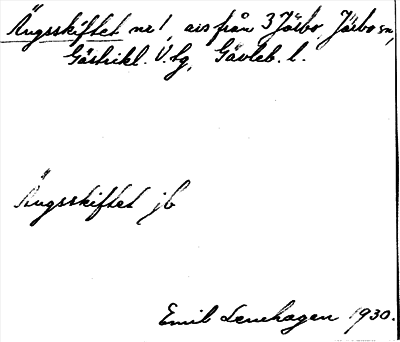 Ängsskiftet ne!, avs från 3 Järbo, Järbo sn,
Gästrikl. V. tg, Gävleb. l.
Ängsskiftet jb
Emil Lenhagen 1930.